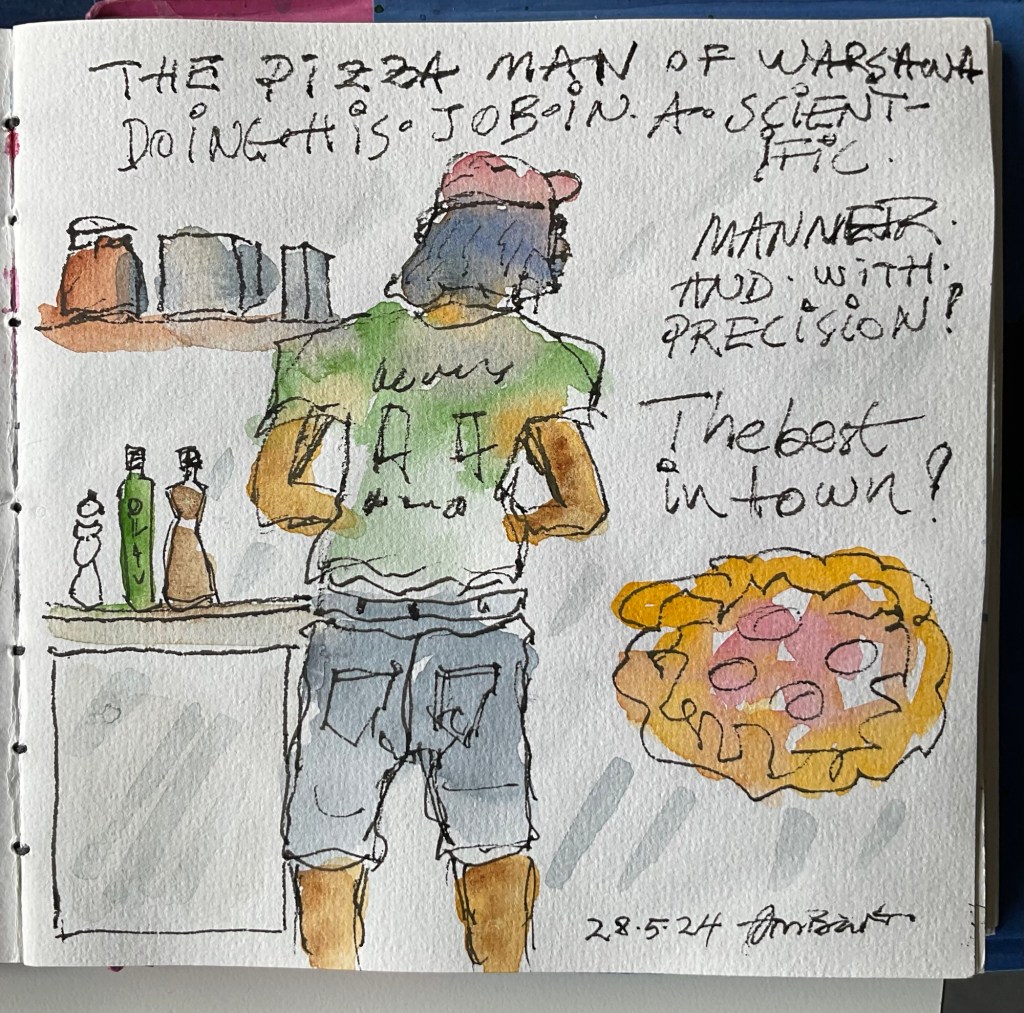 THE PIZZA MAN OF WARSAWA
DOING·HIS·JOB·IN·A·SCIENT-
IFIC.
MANNER·
AND·WITH·
PRECISION!
The best
in town!
28·5·24